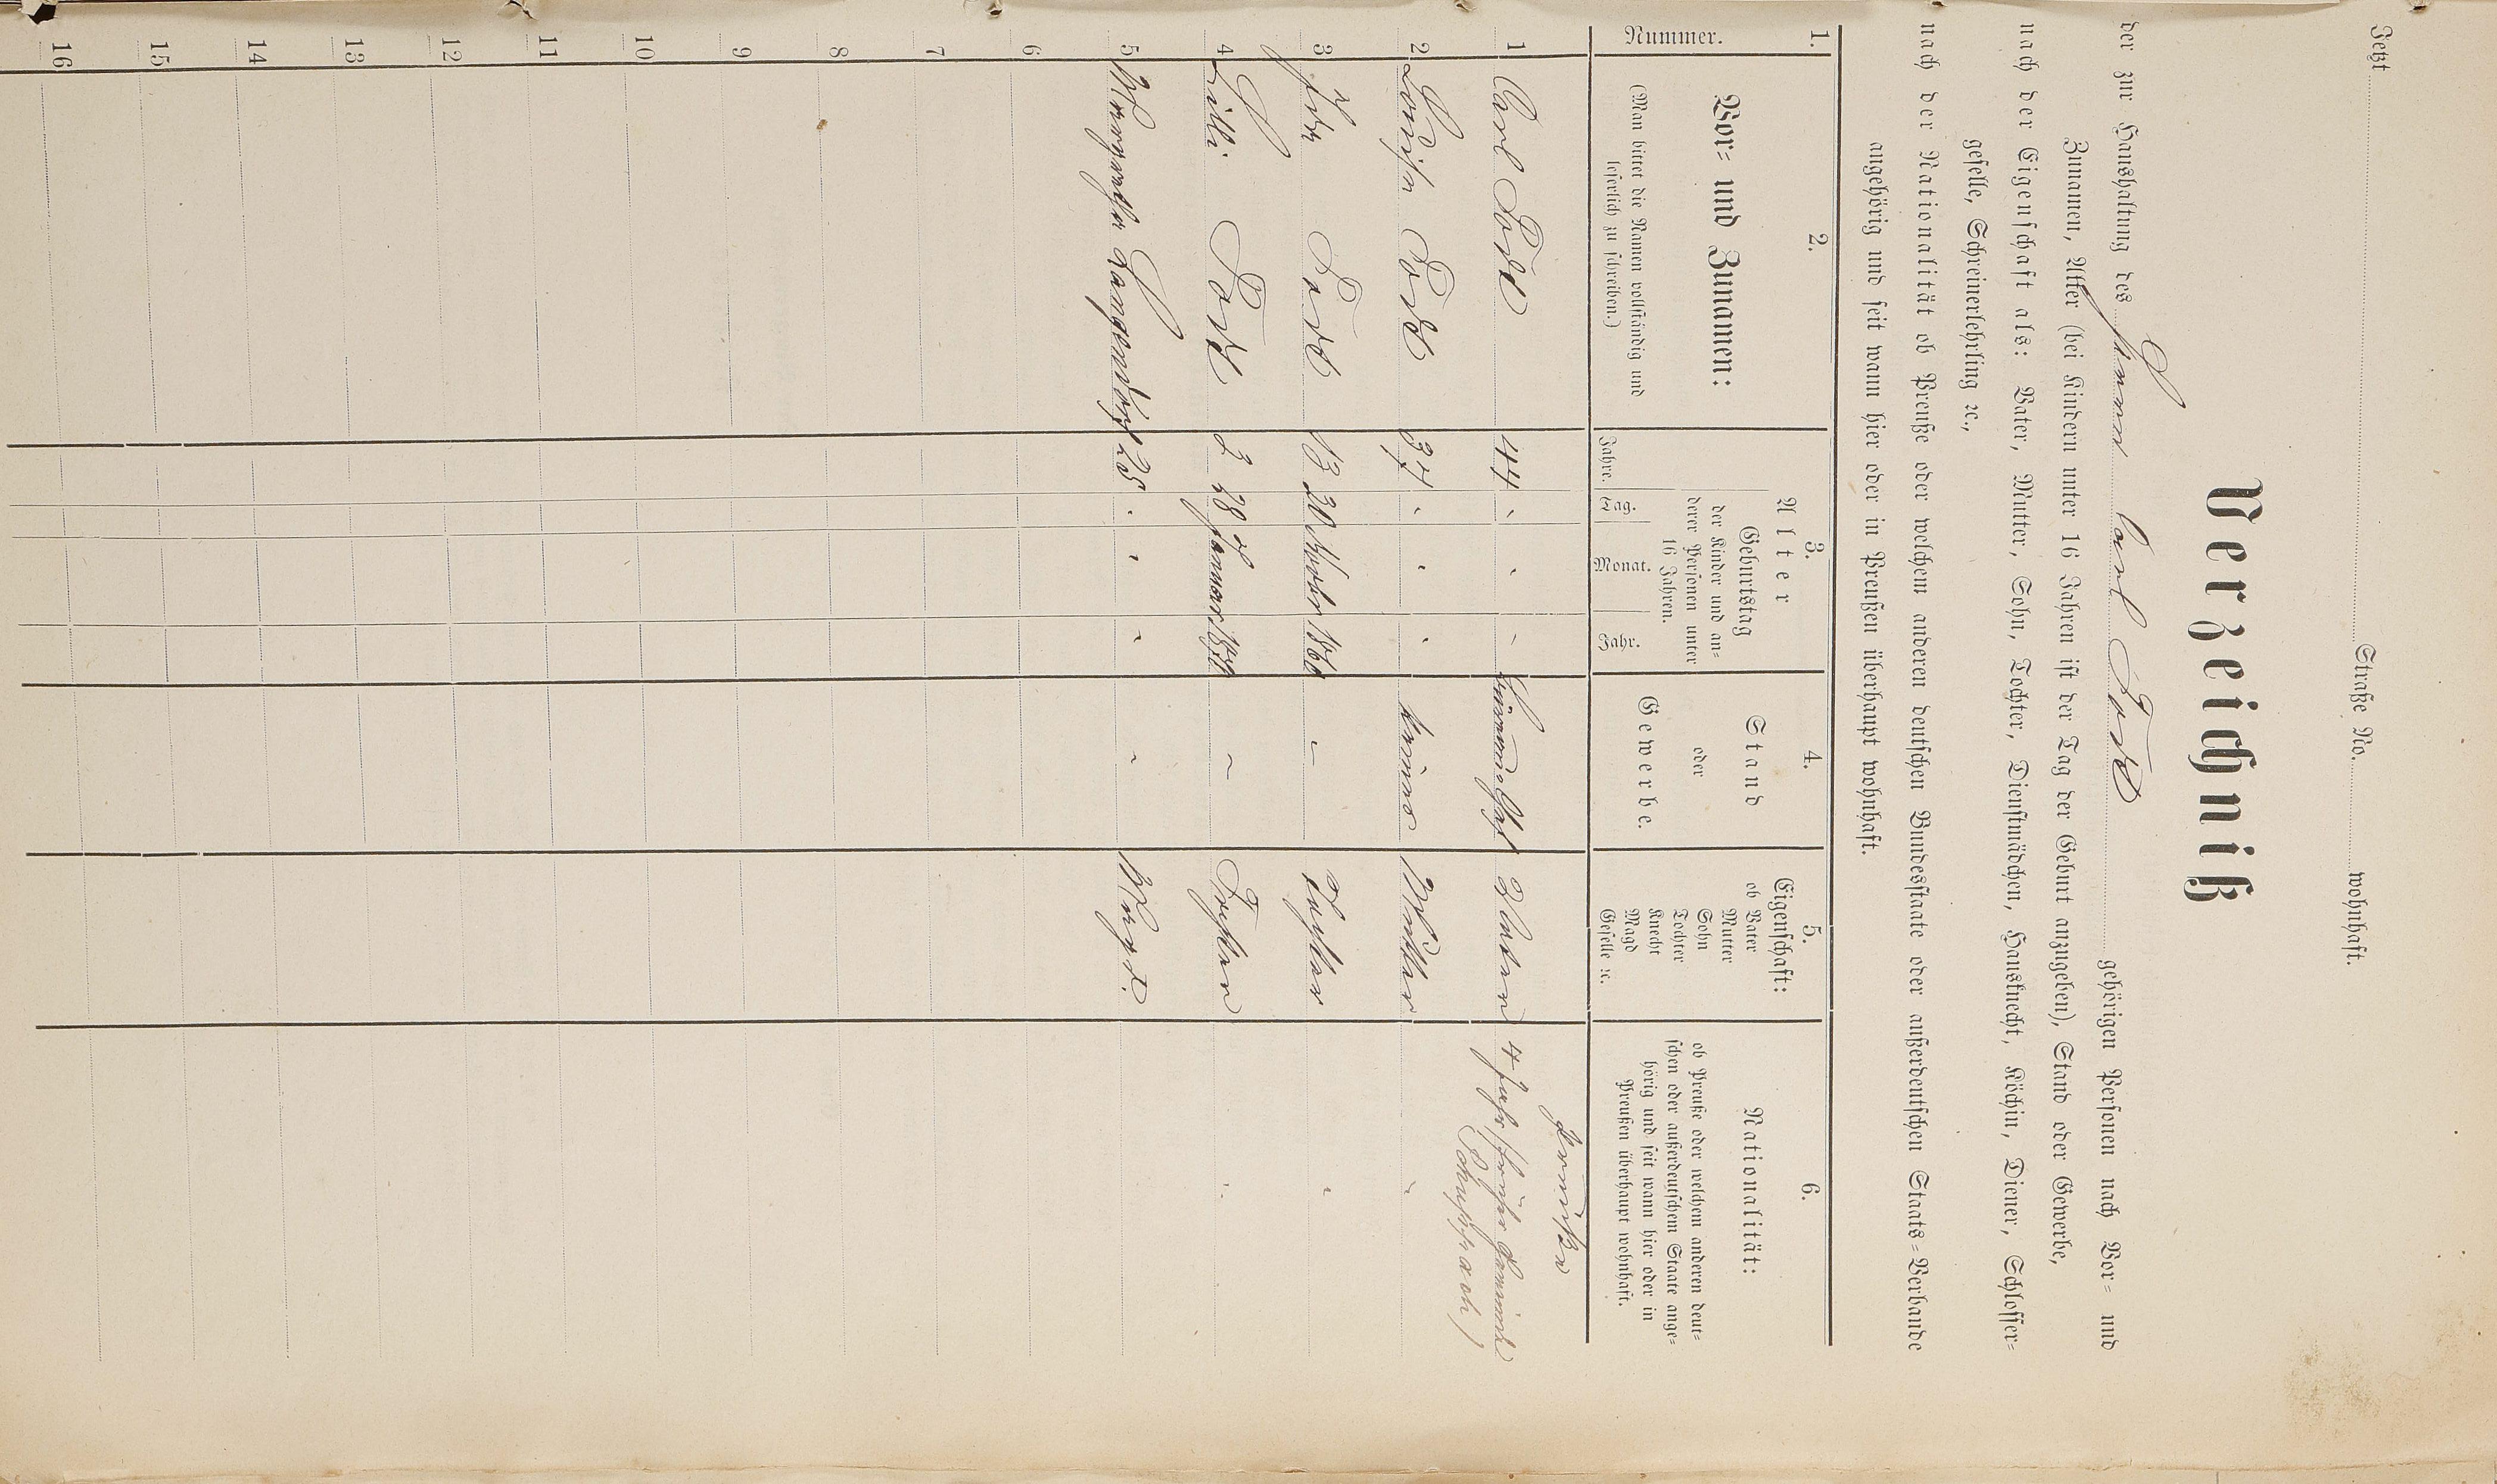 Jetzt Straße No. wohnhaft.
Verzeichniß
der zur Haushaltung des Herrn Carl gehörigen Personen nach Vor- und
Zunamen, Alter (bei Kindern unter 16 Jahren ist der Tag der Geburt anzugeben), Stand oder Gewerbe,
nach der Eigenschaft als: Vater, Mutter, Sohn, Tochter, Dienstmädchen, Hausknecht, Köchin, Diener, Schlosser-
geselle, Schreinerlehrling ꝛc.,
nach der Nationalität ob Preuße oder welchem anderen deutschen Bundesstaate oder außerdeutschen Staats-Verbande
angehörig und seit wann hier oder in Preußen überhaupt wohnhaft.
1. 2. 3. 4. 5. 6.
Nummer.
Vor- und Zunamen:
(Man bittet die Namen vollständig und
leserlich zu schreiben.)
Alter
Jahre.
Geburtstag
der Kinder und an-
derer Personen unter
16 Jahren.
Tag. Monat. Jahr.
Stand
oder
Gewerbe.
Eigenschaft:
ob Vater
Mutter
Sohn
Tochter
Knecht
Magd
Geselle ꝛc.
Nationalität:
ob Preuße oder welchem anderen deut-
schen oder außerdeutschem Staate ange-
hörig und seit wann hier oder in
Preußen überhaupt wohnhaft.
Preußen
1 Carl 44 " " " Vater 4 Jahr (früher
2 Louise 37 " " " keines Mutter "
3 13 30 1860 – Tochter "
4 Lilli 3 28 Januar – Tochter "
5 Margarethe Langendorf 25 " " " " Magd.
6
7
8
9
10
11
12
13
14
15
16